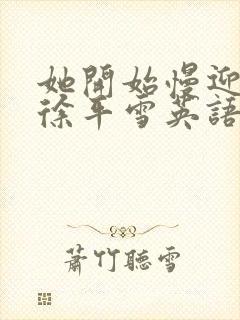 她開始慢迎
徐平雪英語
蕭竹聽雪